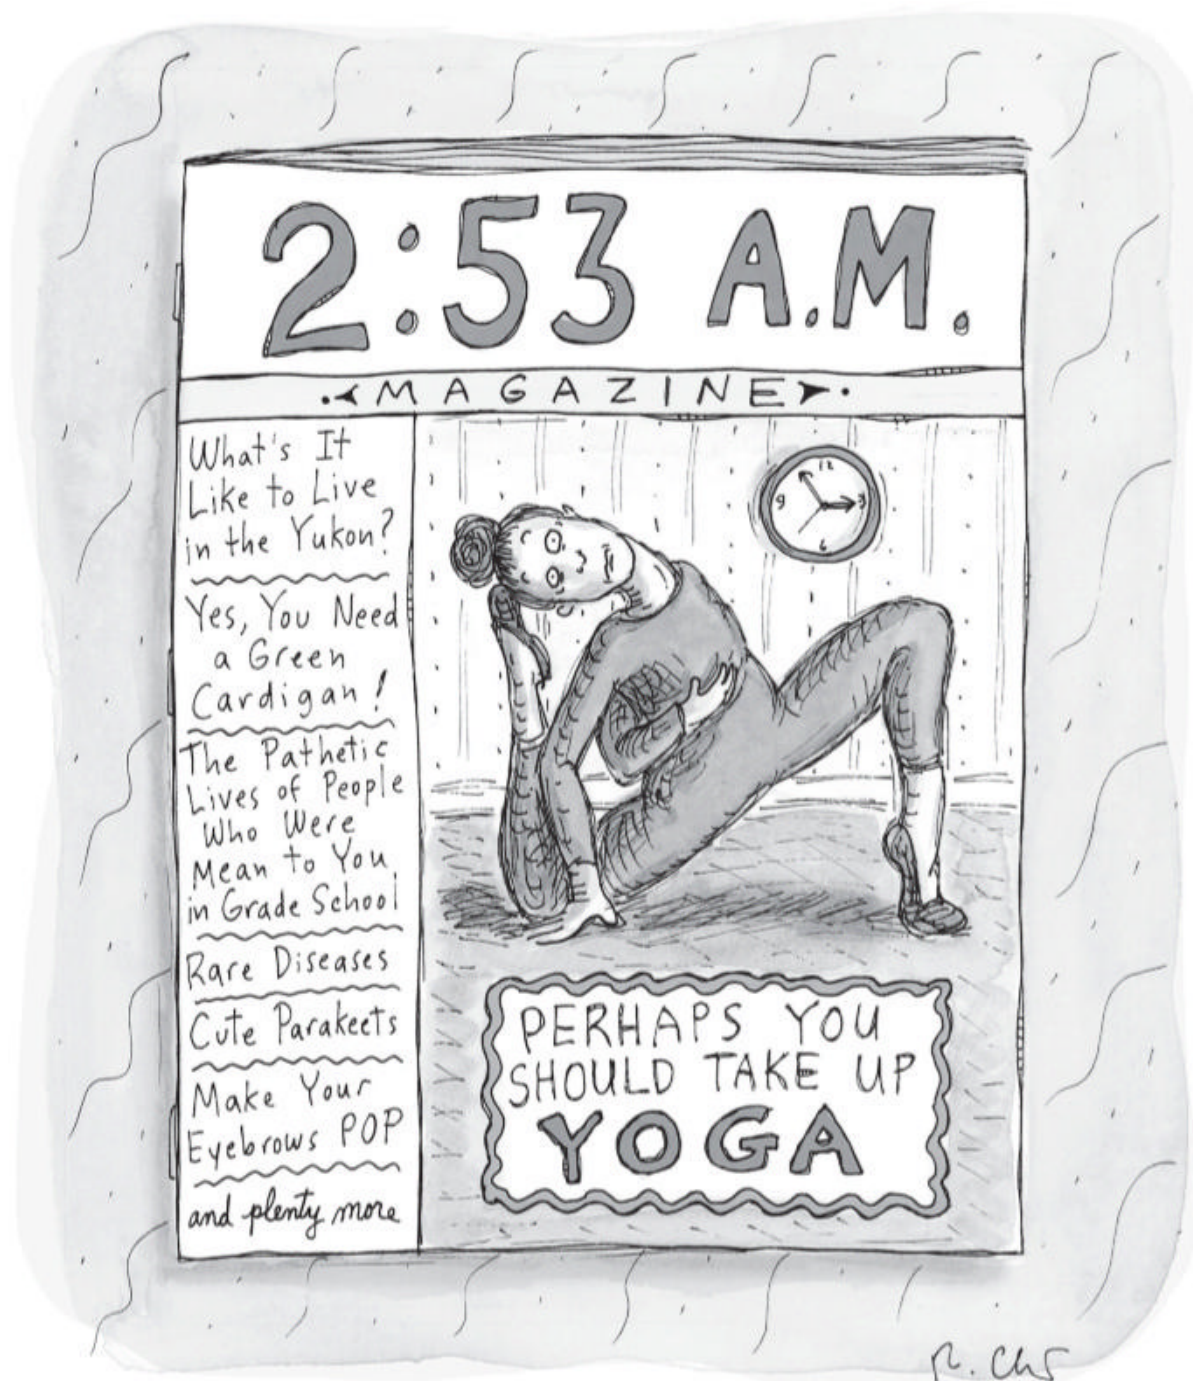 2:53 A.M.
MAGAZINE
What's It
Like to Live
in the Yukon?
Yes, You Need
a Green
Cardigan!
The Pathetic
Lives of People
Who Were
Mean to You
in Grade School
Rare Diseases
Cute Parakeets
Make Your
Eyebrows POP
and plenty more
12
9
3
6
PERHAPS YOU
SHOULD TAKE UP
YOGA